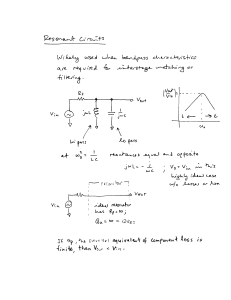 Resonant Circuits
Widely used when bandpass characteristics
are required for interstage matching or
filtering.
Rs
Vout
Vin
jωL
1/jωC
L
C
ω₀
Lo pass
at ω₀² = 1/LC reactances equal and opposite
jωL = -1/jωC ; Vo = Vin in this
highly ideal case
w/o losses or
Rs
Vout
Vin
ideal resonator
has Rp = ∞,
If Rp, the parallel equivalent of component loss is
finite, then Vout < Vin.